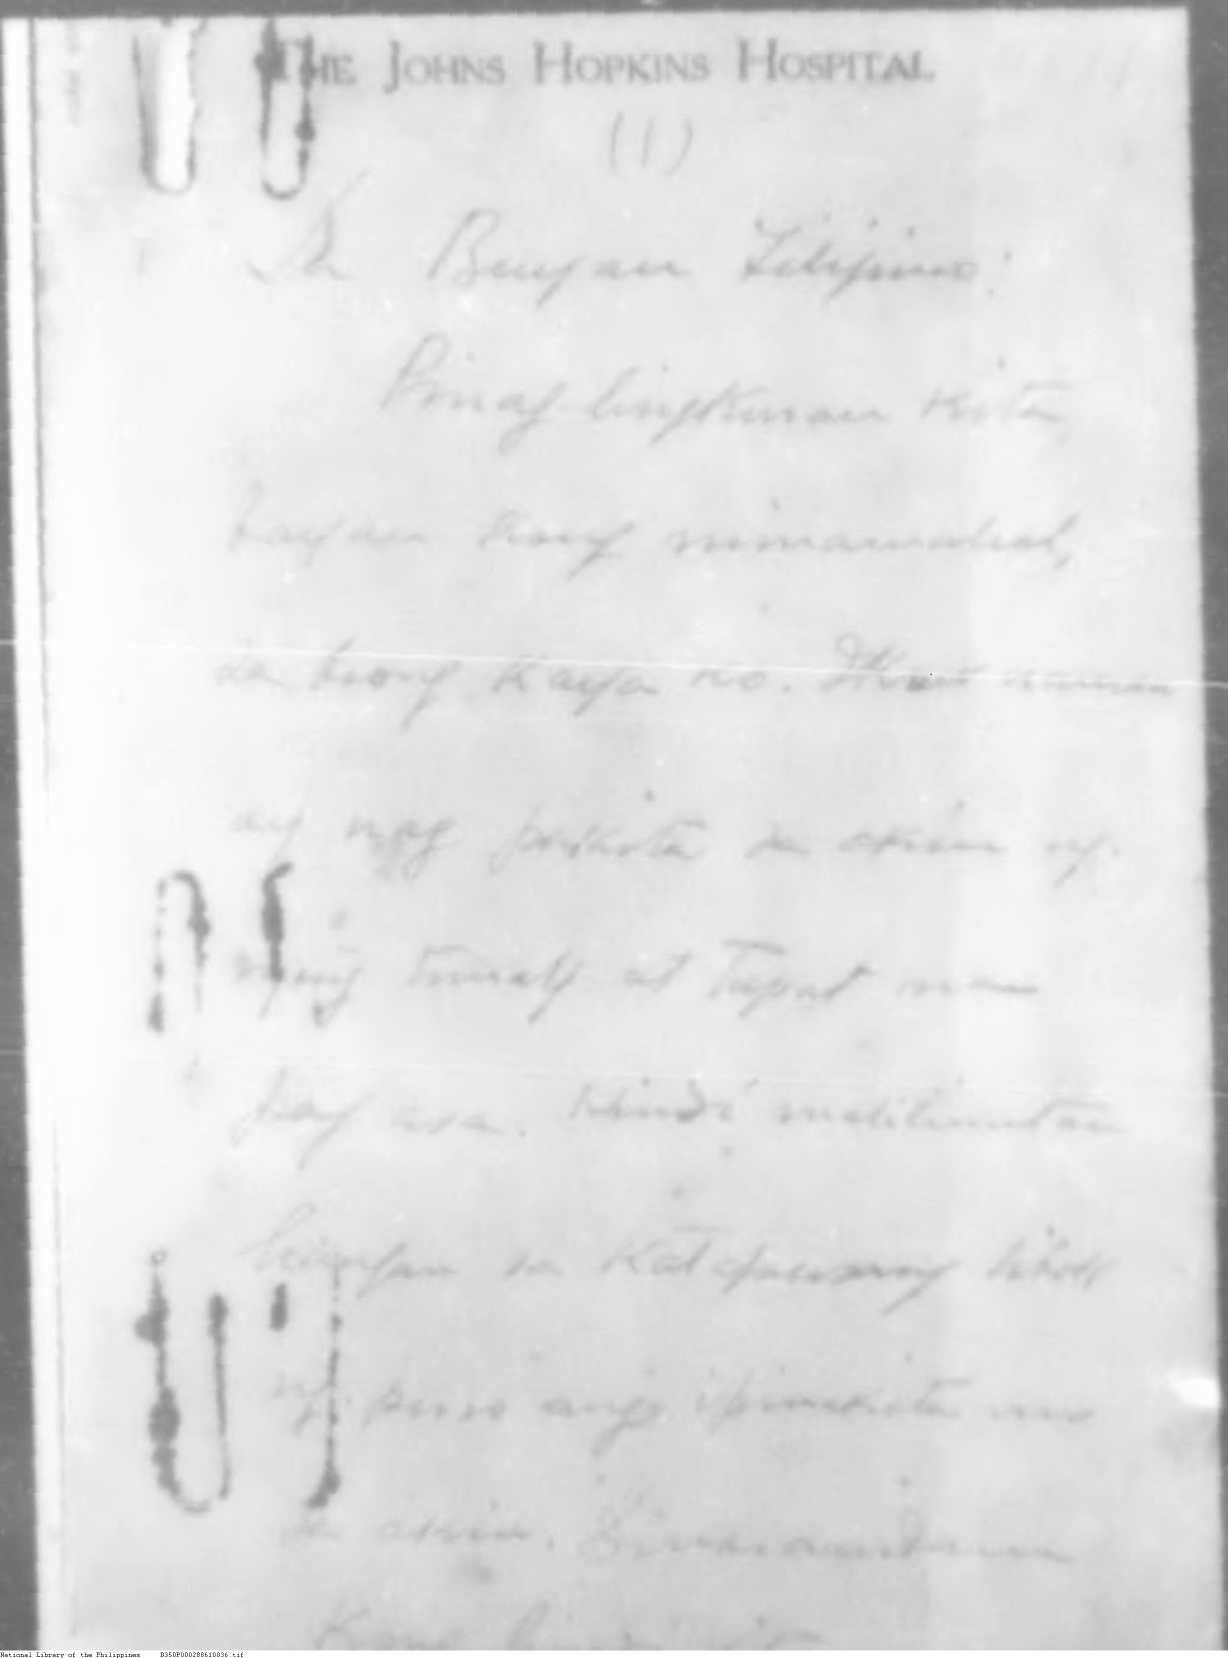 THE JOHNS HOPKINS HOSPITAL
(1)
Sa Bayan Filipino:
Pinag lingkuran kita
bayan kong minamahal,
sa boong kaya ko. Ikaw naman
ay nag pakita sa akin ng
iyong tunay at tapat na
pag asa. Hindi malilimutan
sa katapusang tibok
ng puso ang ipinakita mo
sa akin.
National Library of the Philippines D350P000288610036.tif